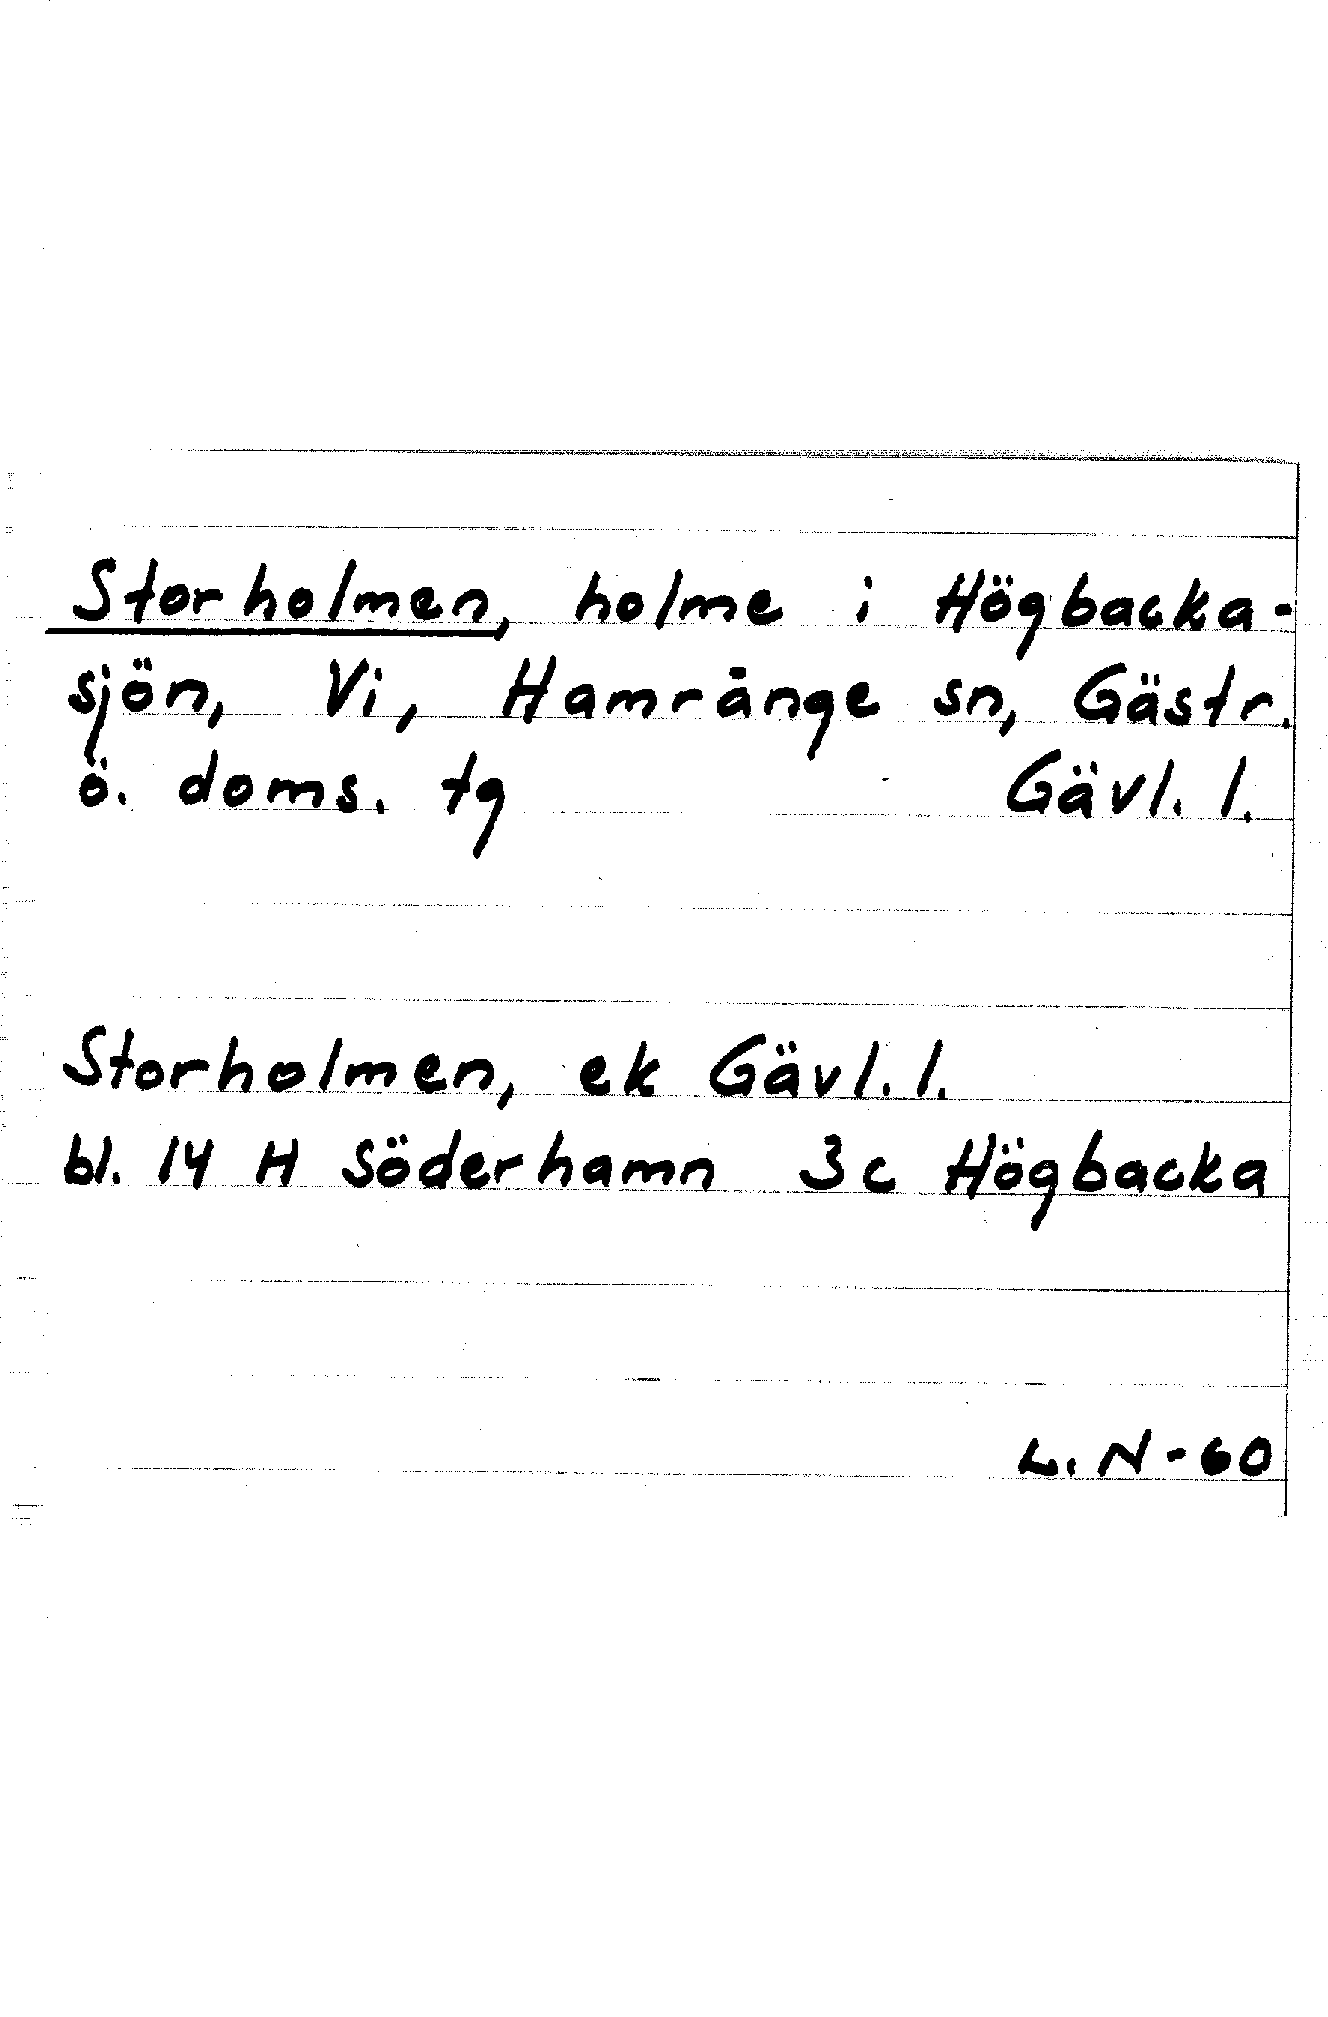 Storholmen, holme i Högbacka-
sjön, Vi, Hamrånge sn, Gästr.
ö. doms. tg Gävl. l.
Storholmen, ek Gävl. l.
bl. 14 H Söderhamn 3c Högbacka
L. N - 60